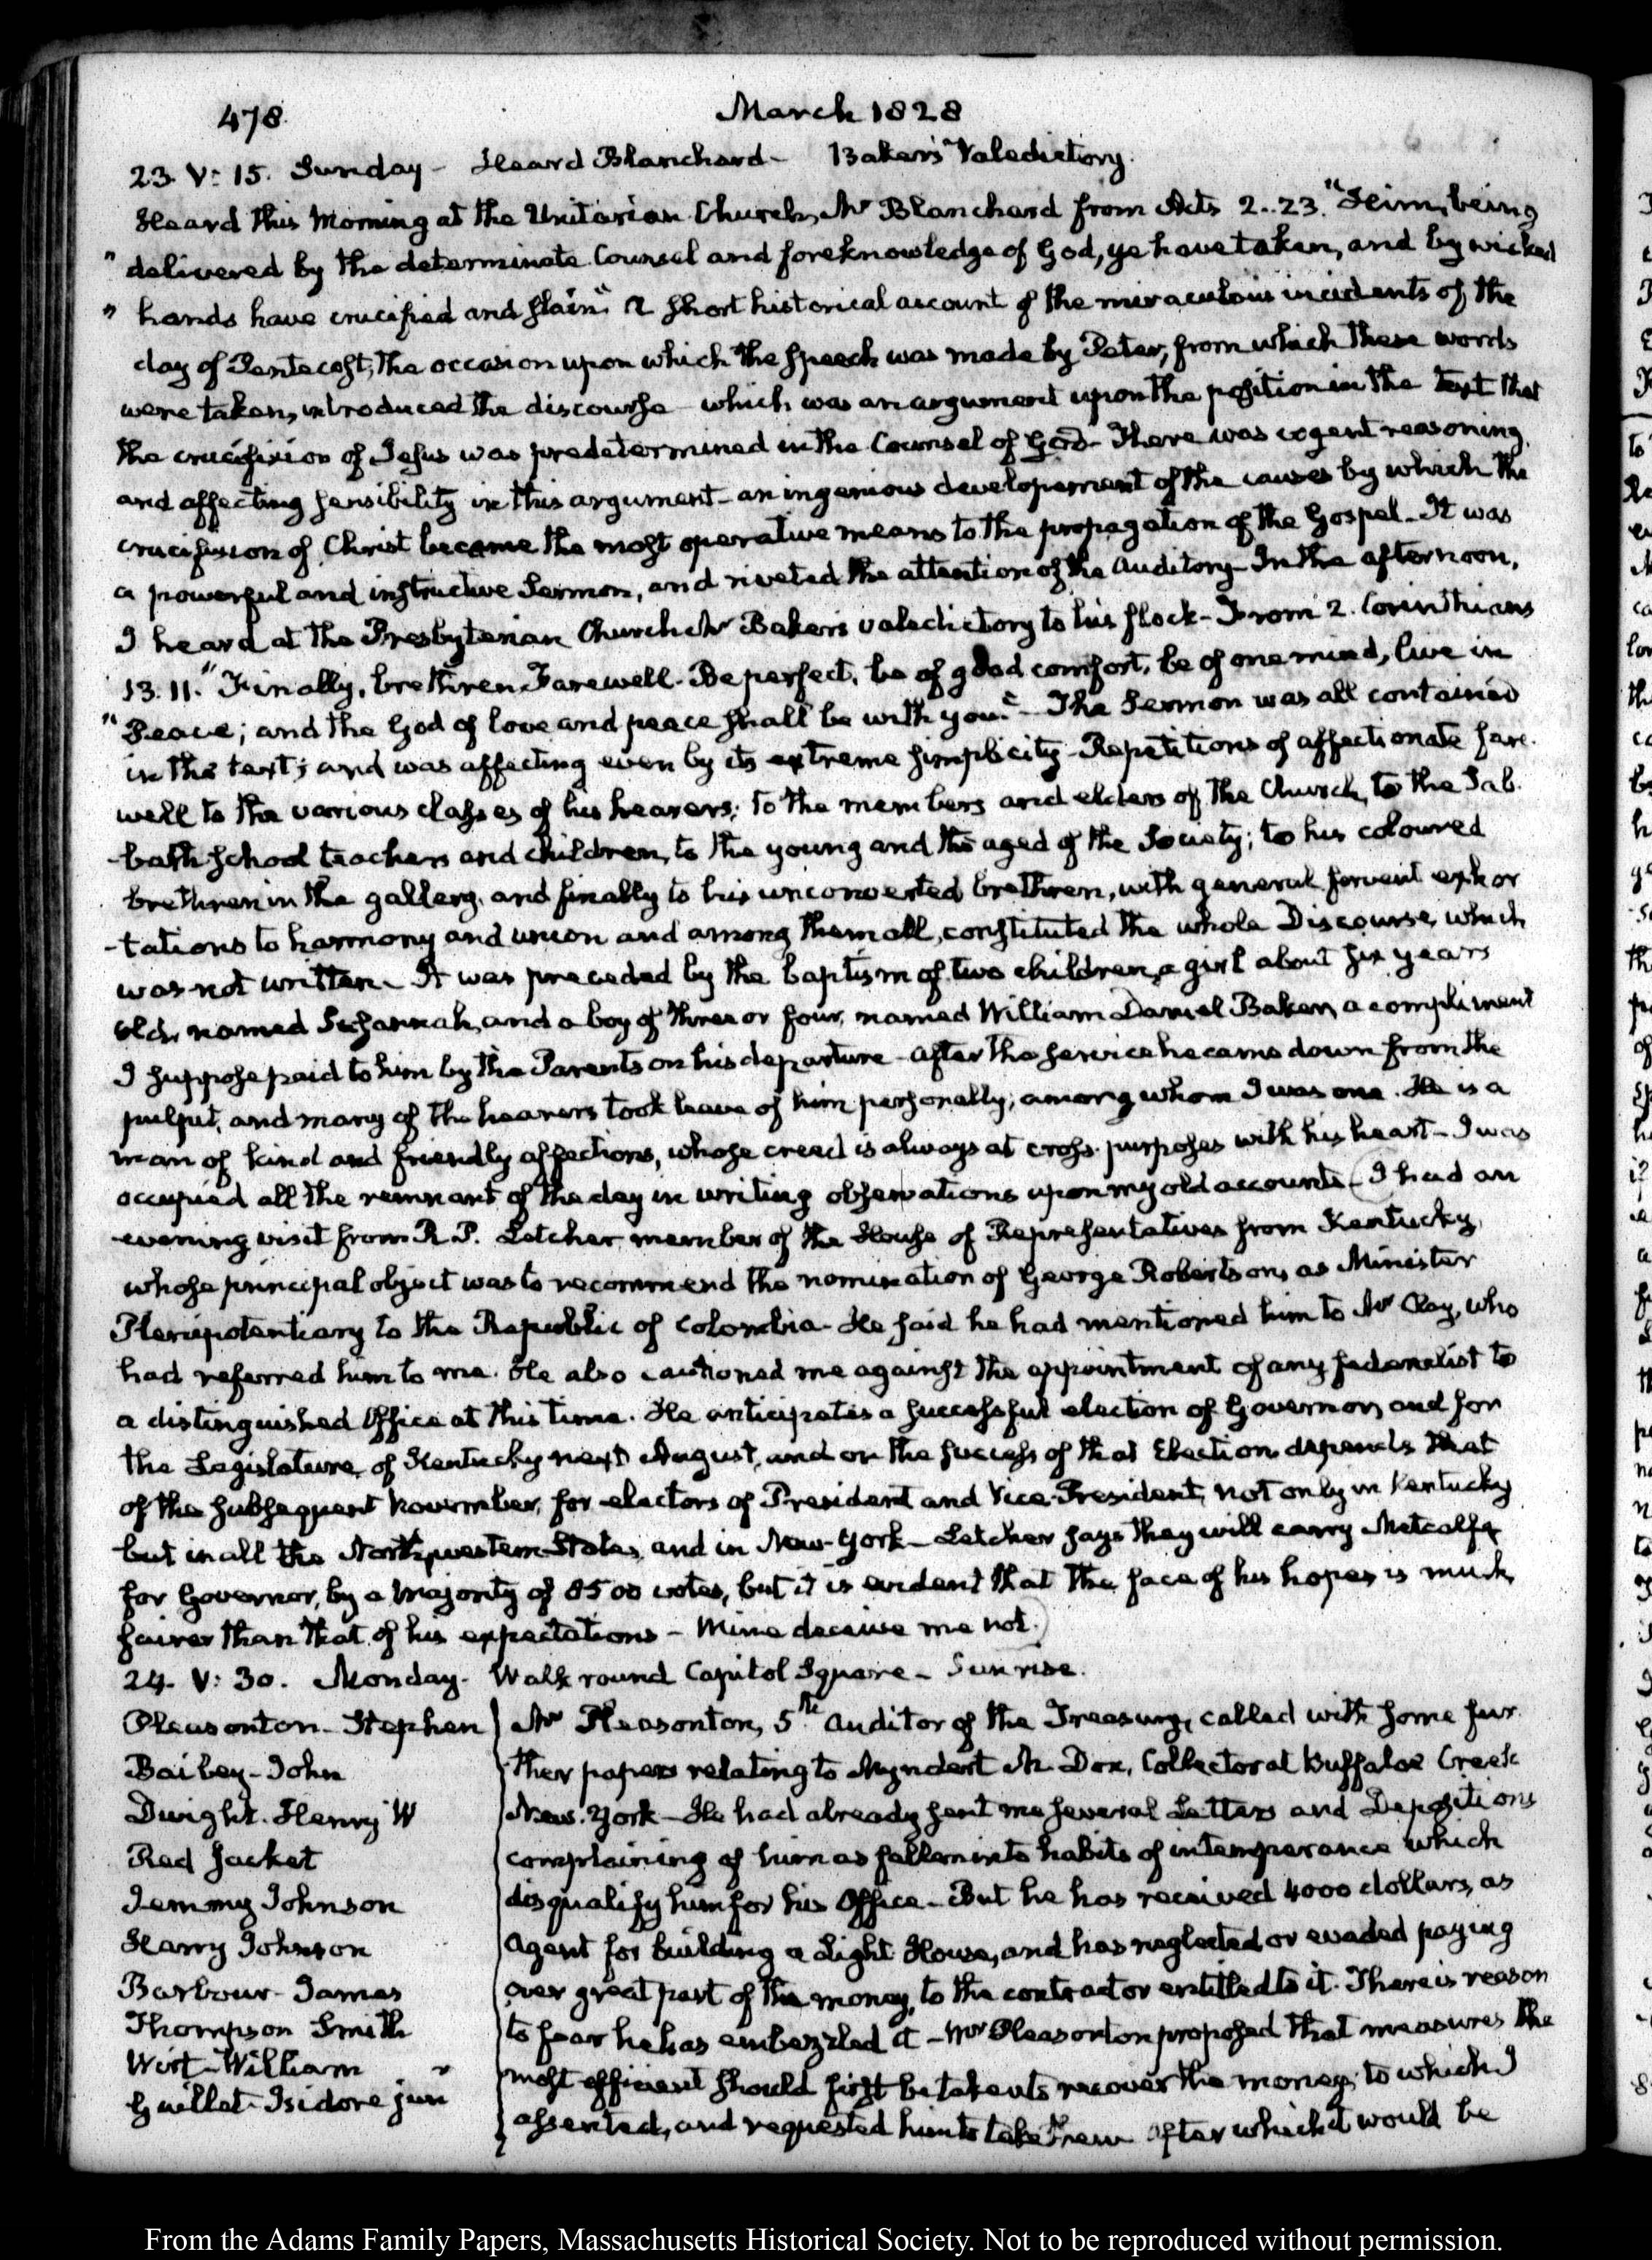 478
March 1828
23. V: 15. Sunday – Heard Blanchard – Baker's Valedictory.
Heard this Morning at the Unitarian Church, Mr Blanchard from Acts 2..23. "Him, being
" delivered by the determinate Counsel and foreknowledge of God, ye have taken, and by wicked
" hands have crucified and slain" A short historical account of the miraculous incidents of the
day of Pentecost, the occasion upon which the speech was made by Peter, from which these words
were taken, introduced the discourse – which was an argument upon the position in the text that
the crucifixion of Jesus was predetermined in the Counsel of God – There was cogent reasoning,
and affecting sensibility in this argument – an ingenious developement of the causes by which the
crucifixion of Christ became the most operative means to the propagation of the Gospel – It was
a powerful and instructive Sermon, and riveted the attention of the Auditory – In the afternoon,
I heard at the Presbyterian Church Mr Baker's valedictory to his flock – From 2. Corinthians
13. 11. "Finally, brethren, Farewell. Be perfect, be of good comfort, be of one mind, live in
" Peace; and the God of love and peace shall be with you." – The Sermon was all contained
in the text; and was affecting even by its extreme simplicity – Repetitions of affectionate fare-
well to the various classes of his hearers; to the members and elders of the Church, to the Sab-
-bath School teachers and children, to the young and the aged of the Society; to his coloured
brethren in the gallery, and finally to his unconverted brethren, with general fervent exhor
-tations to harmony and union and among them all, constituted the whole Discourse, which
was not written – It was preceded by the baptism of two children, a girl about six years
old, named Susannah, and a boy of three or four, named William Daniel Baker, a compliment
I suppose paid to him by the Parents on his departure – After the service he came down from the
pulpit, and many of the hearers took leave of him personally, among whom I was one. He is a
man of kind and friendly affections, whose creed is always at cross-purposes with his heart – I was
occupied all the remnant of the day in writing observations upon my old accounts – (I had an
evening visit from R. P. Letcher member of the House of Representatives from Kentucky,
whose principal object was to recommend the nomination of George Robertson, as Minister
Plenipotentiary to the Republic of Colombia – He said he had mentioned him to Mr Clay, who
had referred him to me. He also cautioned me against the appointment of any federalist to
a distinguished Office at this time. He anticipates a successful election of Governor, and for
the Legislature of Kentucky next August, and on the success of that Election depends that
of the subsequent November, for electors of President and Vice-President, not only in Kentucky
but in all the Northwestern States, and in New-York – Letcher says they will carry Metcalfe
for Governor, by a majority of 8500 votes, but it is evident that the face of his hopes is much
fairer than that of his expectations – Mine deceive me not.)
24. V: 30. Monday. Walk round Capitol Square – Sunrise.
Pleasonton – Stephen
Bailey – John
Dwight. Henry W
Red Jacket
Jemmy Johnson
Harry Johnson
Barbour – James
Thompson Smith
Wirt – William
Guillet – Isidore junr
Mr Pleasonton, 5th Auditor of the Treasury, called with some fur-
ther papers relating to Myndert M. Dox, Collector at Buffaloe Creek
New-York – He had already sent me several Letters and Depositions
complaining of him as fallen into habits of intemperance which
disqualify him for his Office – But he has received 4000 dollars, as
Agent for building a Light House, and has neglected or evaded paying
over great part of the money, to the contractor entitled to it. There is reason
to fear he has embezzled it – Mr Pleasonton proposed that measures the
most efficient should first be taken to recover the money, to which I
assented, and requested him to take them after which it would be
From the Adams Family Papers, Massachusetts Historical Society. Not to be reproduced without permission.